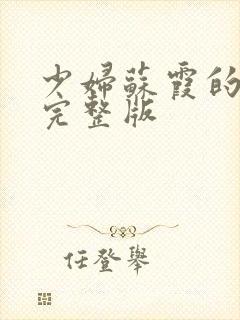 少婦蘇霞的
完整版
任登舉